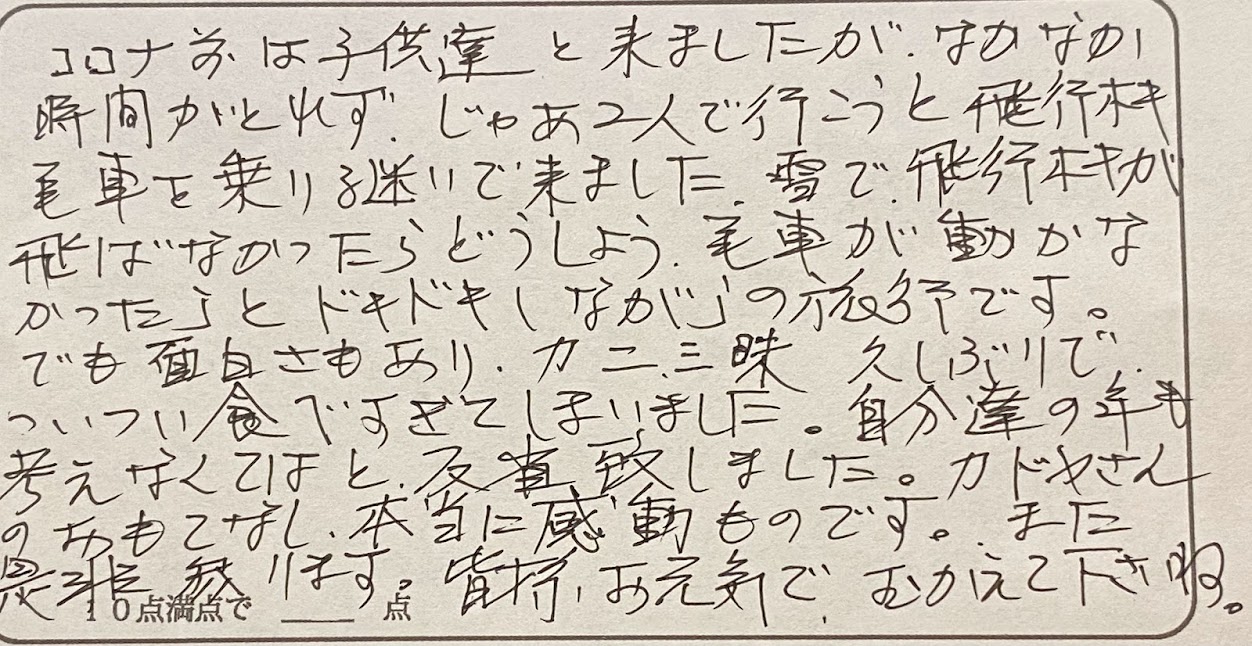 コロナ前は子供達と来ましたが、なかなか
時間がとれず、じゃあ2人で行こうと飛行機
電車を乗り継いで来ました。雪で、飛行機が
飛ばなかったらどうしよう、電車が動かな
かったらとドキドキしながらの旅行です。
でも面白さもあり、カニ三昧 久しぶりで、
ついつい食べすぎてしまいました。自分達の年も
考えなくてはと、反省致しました。カドヤさん
のおもてなし、本当に感動ものです。また
是非参ります。皆様、お元気で、むかえて下さいね。
10点満点で ___ 点